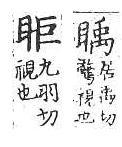 䁠居禹切
驚視也
䀠九羽切
視也